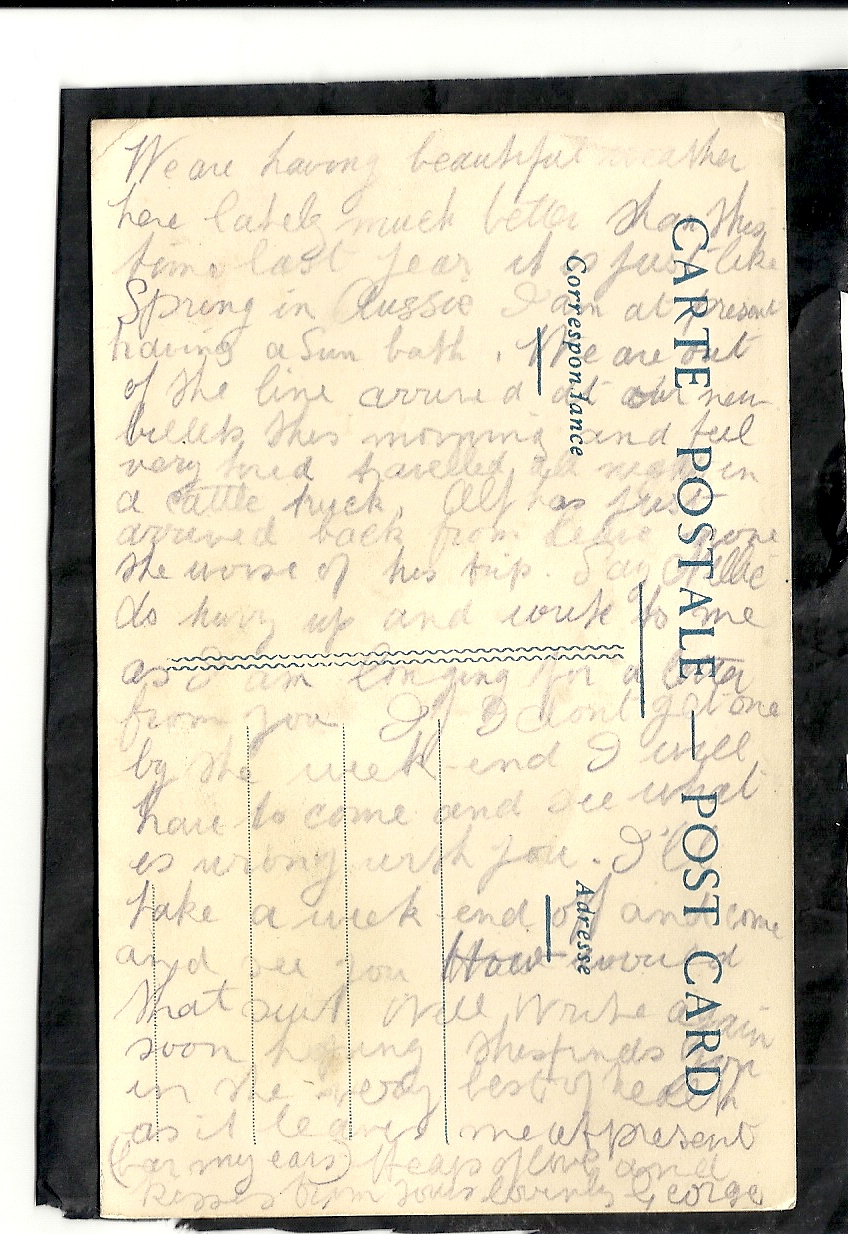 We are having beautiful weather
here lately much better than this
time last year it is just like
Spring in Aussie I am at present
having a Sun bath. We are out
of the line arrived at our new
billets this morning and feel
very tired travelled all night in
a cattle truck. Alf has just
arrived back from leave none
the worse of his trip. Say Nellie
do hurry up and write to me
as I am longing for a letter
from you If I dont get one
by the week-end I will
have to come and see what
is wrong with you. I'll
take a week-end off and come
and see you How would
that suit Well Write again
soon hoping this finds you
in the very best of health
as it leaves me at present
(bar my ears) Heaps of love and
kisses from yours lovingly George
CARTE POSTALE — POST CARD
Correspondance
Adresse